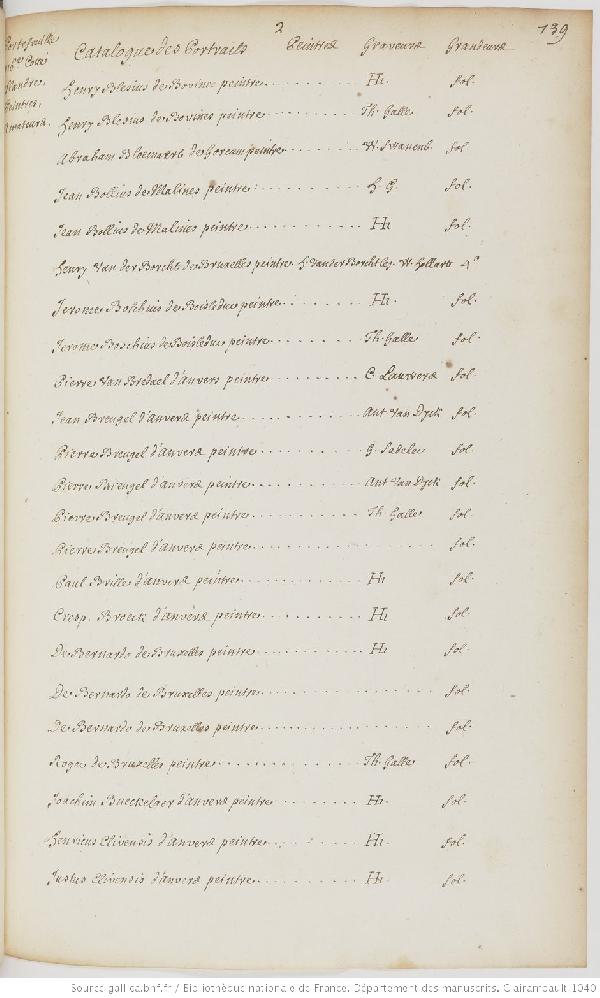 2
139
Catalogue des Portraits Peintres Graveurs Grandeurs
Portefeuille
Flandre,
Peintres,
Amateurs.
Henry Blesius de Bovine peintre. . . . . . . . . . H1 fol.
Henry Blesius de Bovines peintre . . . . . . . . . . Th. Galle fol.
Abraham Bloemaert de Gorcum peintre . . . . . . . . W. Swanenb fol
Jean Bollius de Malines peintre . . . . . . . . . . H. G. fol.
Jean Bollius de Malines peintre . . . . . . . . . . H1 fol.
Henry Van der Borcht de Bruxelles peintre H Vander Borcht les W. Hollart 4º
Jerome Boschius de Boisleduc peintre . . . . . . . . H1. fol.
Jerome Boschius de Boisleduc peintre . . . . . . . . Th. Galle fol.
Pierre Van Bredael d'anvers peintre . . . . . . . . C Lauwers fol.
Jean Breugel d'anvers peintre . . . . . . . . . . Ant Van Dyck fol.
Pierre Breugel d'anvers peintre . . . . . . . . . . G. Sadeler fol.
Pierre Breugel d'anvers peintre . . . . . . . . . . Ant Van Dyck fol.
Pierre Breugel d'anvers peintre . . . . . . . . . . Th. Galle fol.
Pierre Breugel d'anvers peintre . . . . . . . . . . fol.
Paul Brille d'anvers peintre . . . . . . . . . . H1 fol.
Crisp. Broeck d'anvers peintre . . . . . . . . . . H1 fol.
De Bernardo de Bruxelles peintre . . . . . . . . . . H1 fol.
De Bernardo de Bruxelles peintre . . . . . . . . . . fol.
De Bernardo de Bruxelles peintre . . . . . . . . . . fol.
Roger de Bruxelles peintre . . . . . . . . . . Th. Galle fol.
Joachim Bueckelaer d'anvers peintre . . . . . . . . H1. fol.
Henricus Clivensis d'anvers peintre . . . . . . . . H1 fol.
Justus Clivensis d'anvers peintre . . . . . . . . . . H1 fol.
Source gallica.bnf.fr / Bibliothèque nationale de France. Département des manuscrits. Clairambault 1040